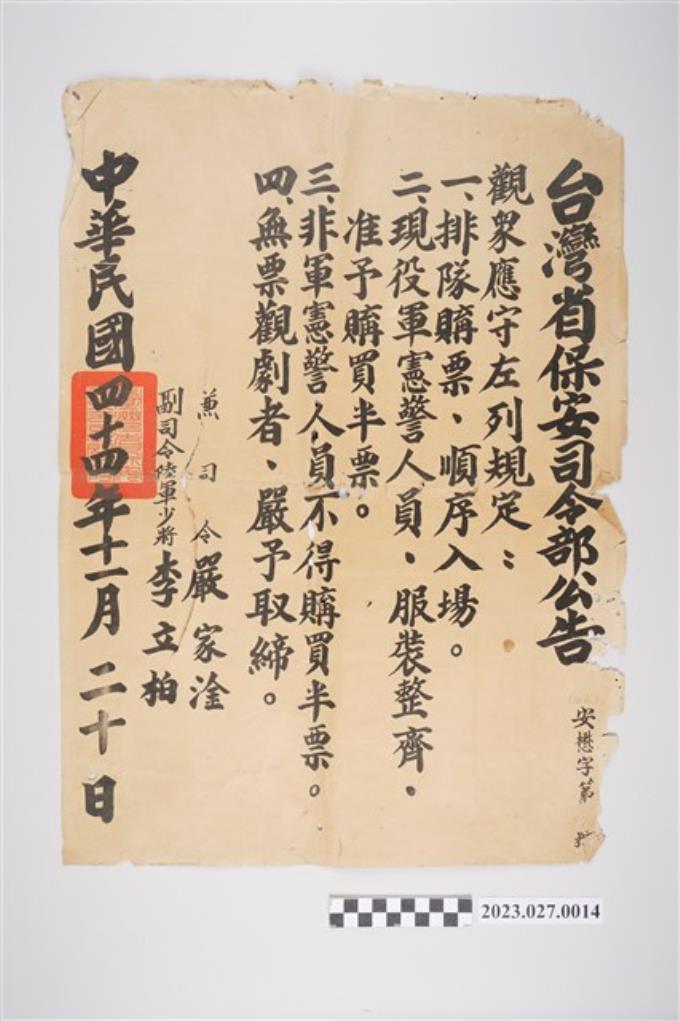 台灣省保安司令部公告
安懋字第 號
觀衆應守左列規定：
一、排隊購票、順序入場。
二、現役軍憲警人員、服裝整齊、
准予購買半票。
三、非軍憲警人員不得購買半票。
四、無票觀劇者、嚴予取締。
兼司令嚴家淦
副司令陸軍少將李立柏
中華民國四十四年十一月二十日
2023.027.0014